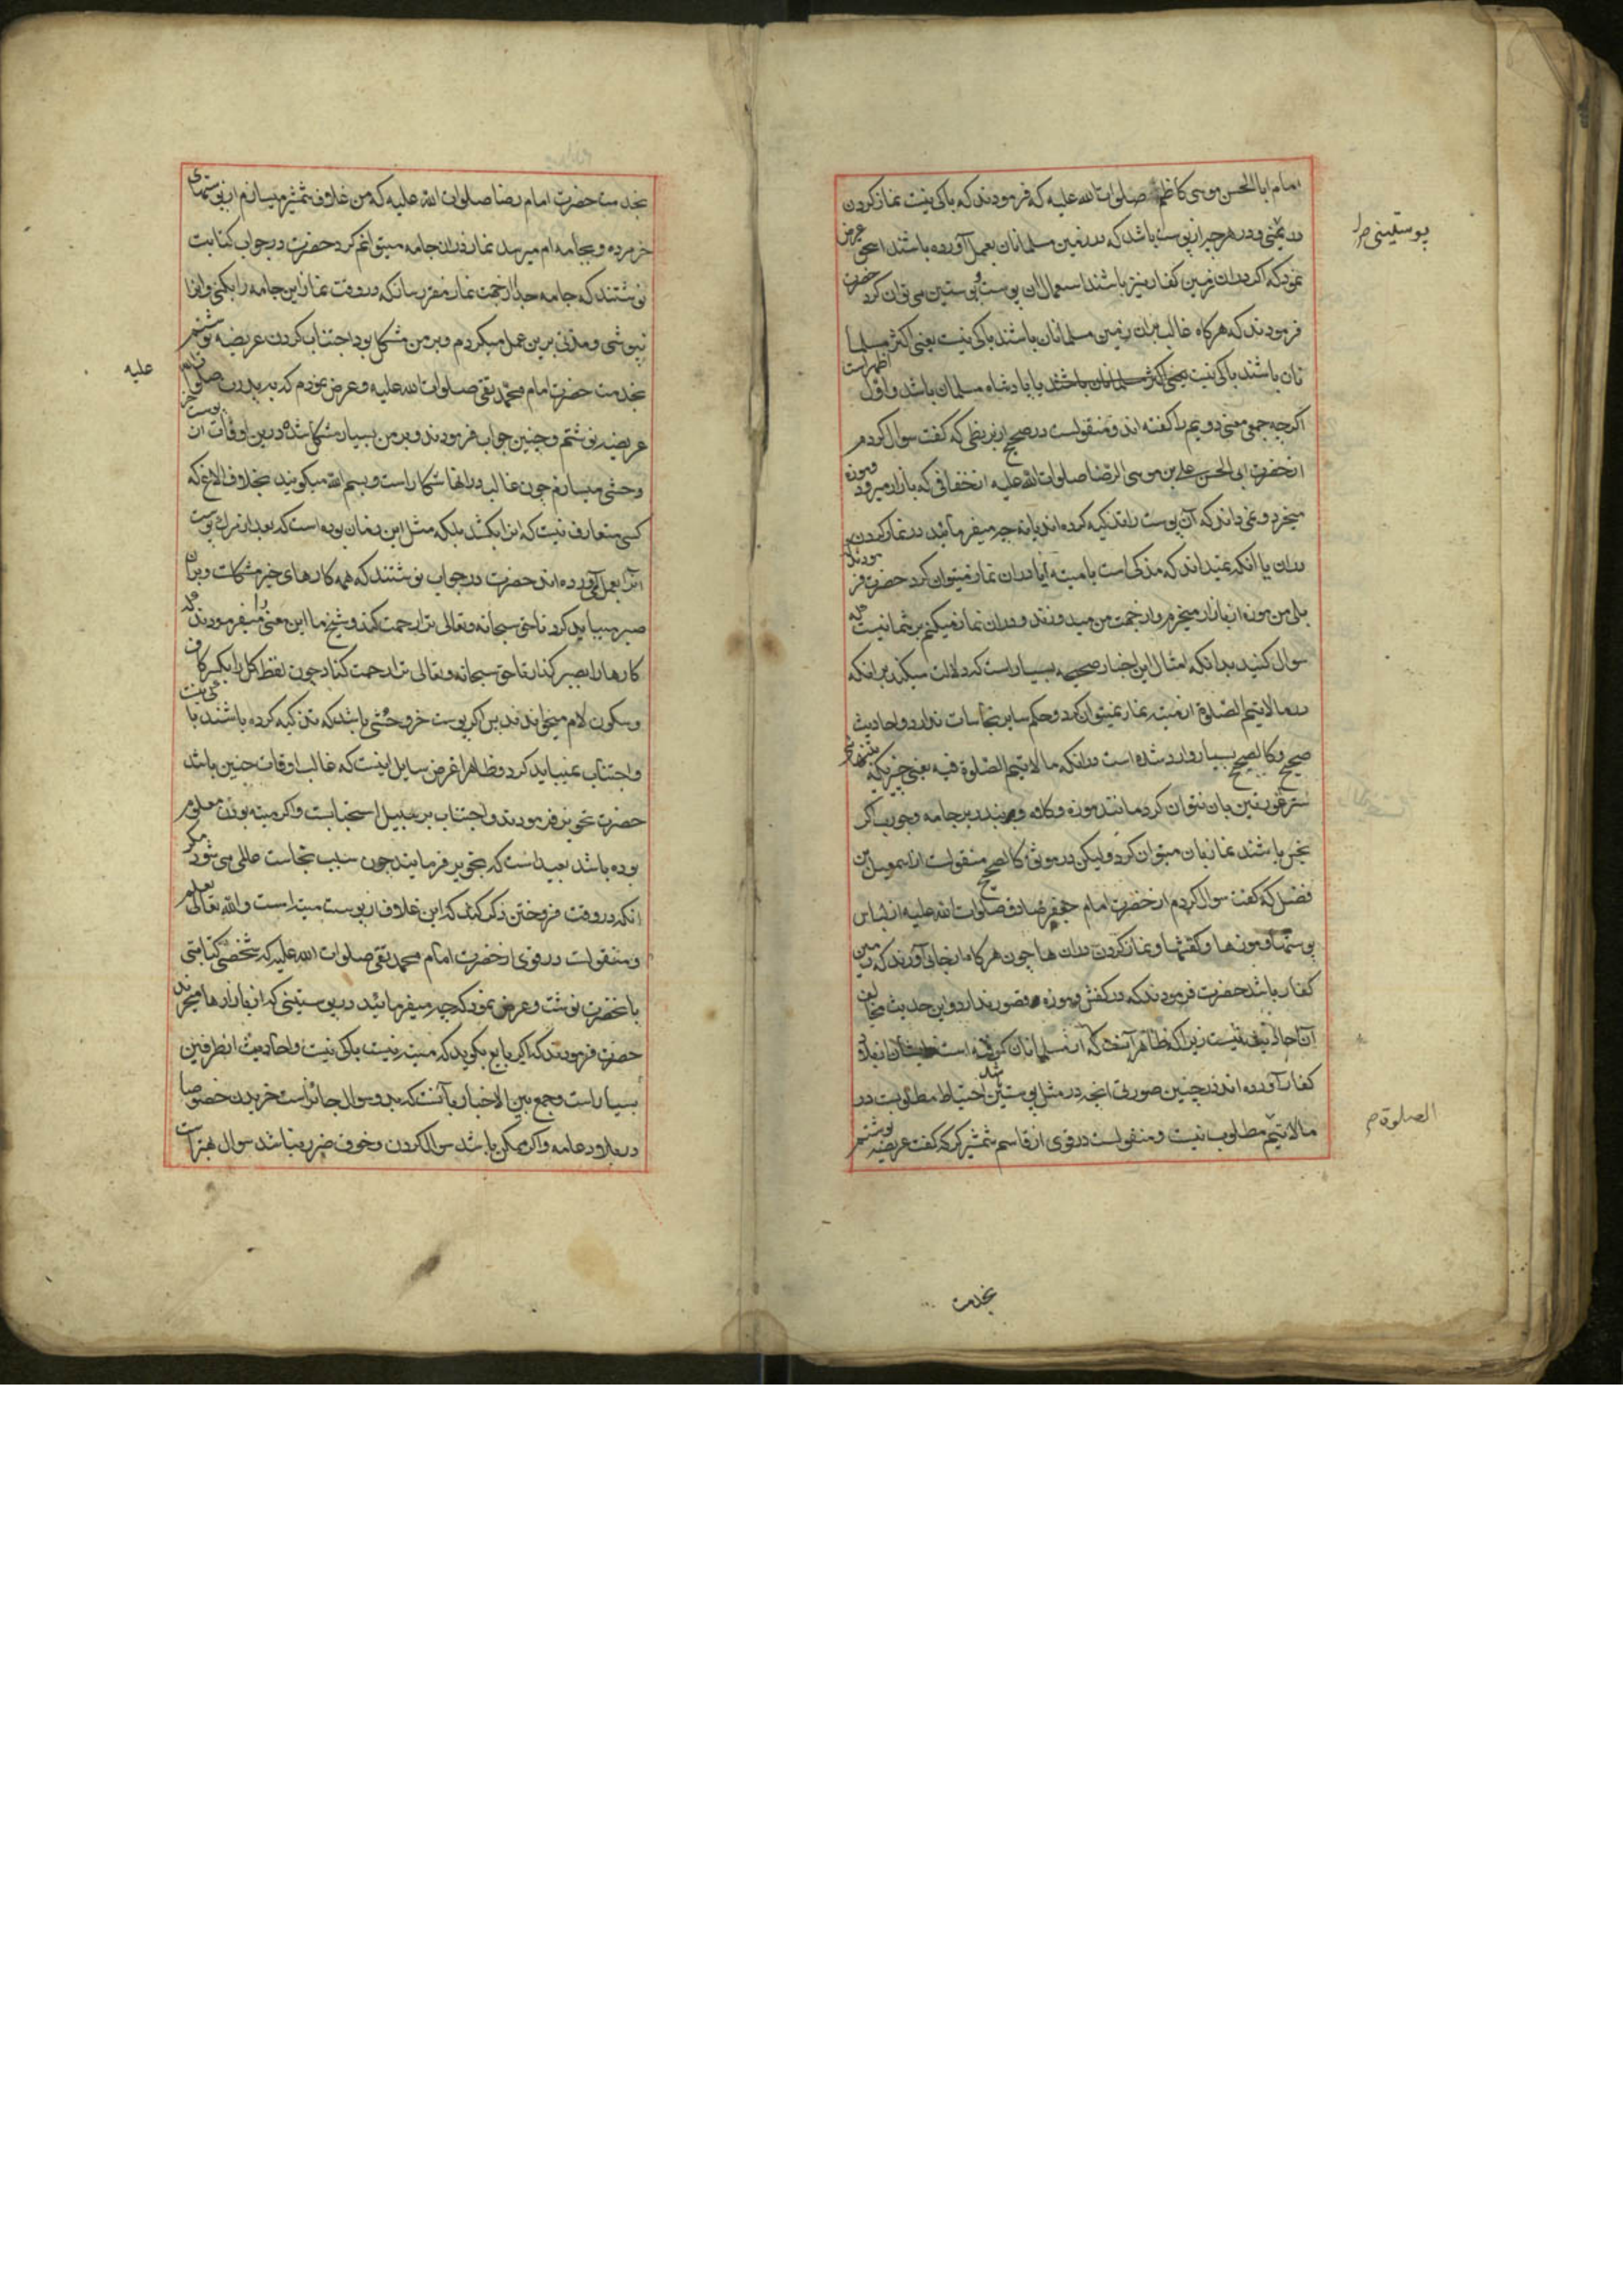 امام ابا الحسن موسی کاظم صلوات الله علیه که فرمودند که باکی نیست نماز کردن
پوستینی
در یمنی و در هر چه از پوست باشد که در زمین مسلمانان بعمل آورده باشند اسحق عرض
نمود که اگر در ان زمین کفار نیز باشند استعمال ان پوست و پوستین می توان کرد حضرت
فرمودند که هرگاه غالب بران زمین مسلمانان باشند باکی نیست یعنی اکثر مسلما
نان باشند باکی نیست یعنی اکثر مسلمانان باشند یا پادشاه مسلمان باشد و اول اظهر است
اگرچه جمعی معنی دویم را گفته اند و منقولست در صحیح از بزنطی که گفت سوال کردم
از حضرت ابی الحسن علی بن موسی الرضا صلوات الله علیه از خفافی که بازار میرود و موزه
میخرد و نمی داند که آن پوست را تذکیه کرده اند یا نه چه میفرمایند در نماز کردن
در ان یا انکه نمیداند که مذکی است یا میته آیا در ان نماز میتوان کرد حضرت فر مودند که
بلی من موزه از بازار میخرم و از جهت من میدوزند و در ان نماز میکنم بر شما نیست که
سوال کنید بدانکه امثال این اخبار صحیحه بسیار است که دلالت میکند بر انکه
در ما لا یتم الصلوة از میته نماز نمیتوان کرد و حکم سایر نجاسات ندارد و احادیث
صحیح و کالصحیح بسیار وارد شده است در انکه ما لا یتم الصلوة فیه یعنی چیزیکه بتنهائی
ستر عورتین بان نتوان کرد مانند موزه و کلاه و بند زیر جامه و جورب اگر
نجس باشند نماز بان میتوان کرد و لیکن در موثق کالصحیح منقولست از اسمعیل بن
فضل که گفت سوال کردم از حضرت امام جعفر صادق صلوات الله علیه از لباس
پوستها و موزها و کفشها و نماز کردن در ان ها چون هرگاه از جائی آورند که زمین
کفار باشد حضرت فرمودند که در کفش و موزه قصور ندارد و این حدیث مخالف
آن احادیث نیست زیرا که ظاهر آنست که از مسلمانان گرفته است از بلاد
کفار آورده اند در چنین صورتی انچه در مثل پوستین باشد احتیاط مطلوبست در
الصلوة
ما لا یتم مطلوب نیست و منقولست در قوی از قاسم شمشیرگر که گفت عریضه نوشتم
بخدمت
بخدمت حضرت امام رضا صلوات الله علیه که من غلاف شمشیر میسازم از پوستهای
خر مرده و بجامه ام میرسد نماز در ان جامه میتوانم کرد حضرت در جواب کتابت
نوشتند که جامه جدا از جهت نماز مقرر ساز که در وقت نماز این جامه را بکنی و انرا
بپوشی و مدتی برین عمل میکردم و بر من مشکل بود اجتناب کردن عریضه نوشتم
علیه
بخدمت حضرت امام محمد تقی صلوات الله علیه و عرض نمودم که به پدرت صلوات الله
عریضه نوشتم و چنین جواب فرمودند و بر من بسیار مشکل شد و درین اوقات از پوست خر
وحشی میسازم چون غالب در انها شکار است و بسم الله میگویند بخلاف الاغ که
کسی متعارف نیست که انرا بکشد بلکه مثل این زمان بوده است که بعد از مرگ پوست
انرا بعمل آورده اند حضرت در جواب نوشتند که همه کارهای خیر مشکلست و بران
صبر میباید کرد تا حق سبحانه و تعالی ترا رحمت کند و شیخ ما این معنی را میفرمودند که
کارها را بصبر گذار تا حق سبحانه و تعالی ترا رحمت کناد چون لفظ کل را بکسر کاف
و سکون لام میخواندند پس اگر پوست خر وحشی باشد که تذکیه کرده باشند باکی نیست
و اجتناب نمیباید کرد و ظاهرا غرض سایل اینست که غالب اوقات چنین باشد
حضرت تجویز فرمودند و اجتناب بر سبیل استحبابست و اگر میته بودن معلوم
بوده باشد بعید است که تجویز فرمایند چون سبب نجاست عالمی می شود مگر
انکه در وقت فروختن ذکر کند که این غلاف از پوست میته است و الله تعالی یعلم
و منقولست در قوی از حضرت امام محمد تقی صلوات الله علیه که شخصی کتابتی
بانحضرت نوشت و عرض نمود که چه میفرمائید در پوستینی که از بازارها میخرند
حضرت فرمودند که اگر بایع بگوید که میته نیست باکی نیست و احادیث از طرفین
بسیار است و جمع بین الاخبار بآنست که بدون سوال جائز است خریدن خصوصا
در بلاد عامه و اگر ممکن باشد سوال کردن و خوف ضرر نباشد سوال بهتر است